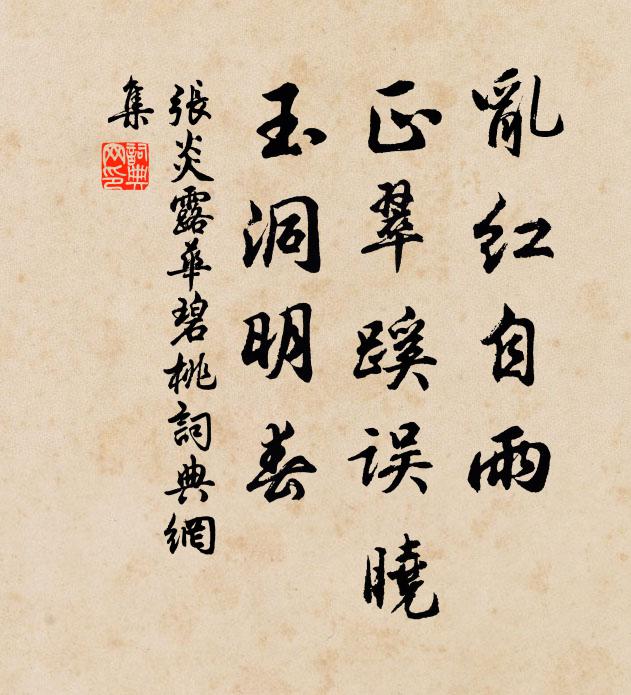 亂紅自雨
正翠蹊误曉
玉洞明春
張炎露華碧桃詞典網
集
詞典網印